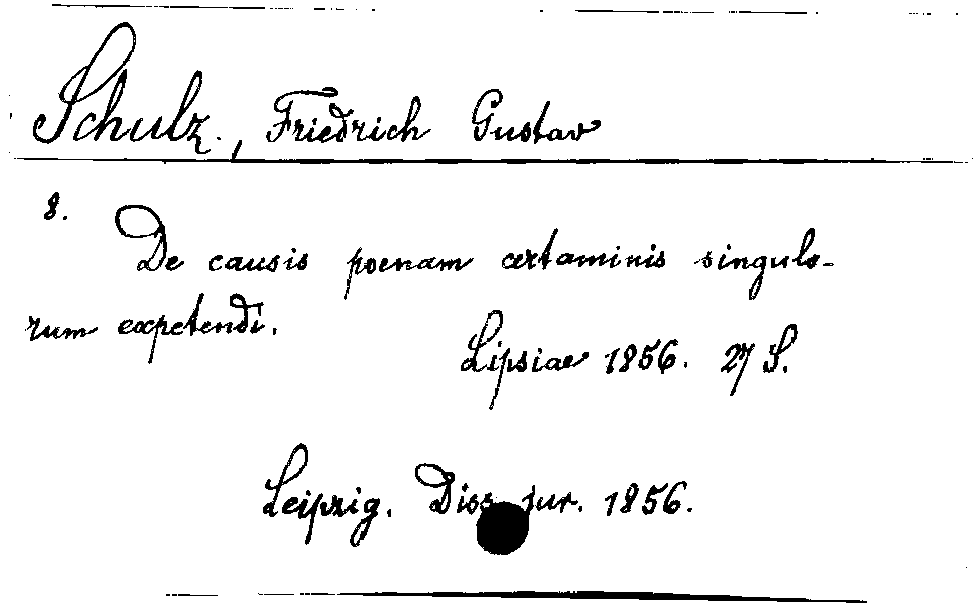 Schulz, Friedrich Gustav
8.
De causis poenam certaminis singulo-
rum expetendi.
Lipsiae 1856. 27 S.
Leipzig. Diss. jur. 1856.